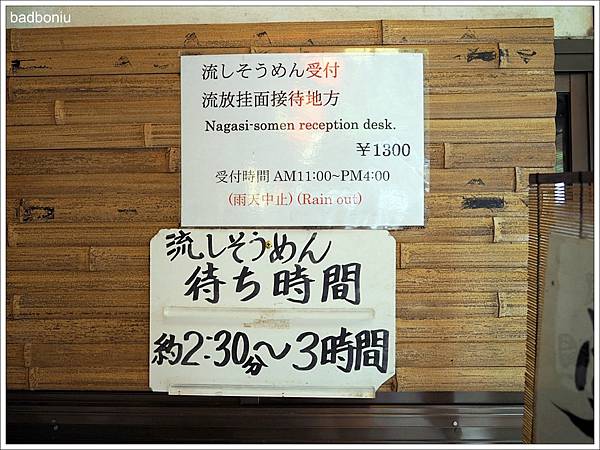 badboniu
流しそうめん受付
流放挂面接待地方
Nagasi-somen reception desk.
￥1300
受付時間 AM11:00~PM4:00
(雨天中止) (Rain out)
流しそうめん
待ち時間
約2:30分~3時間